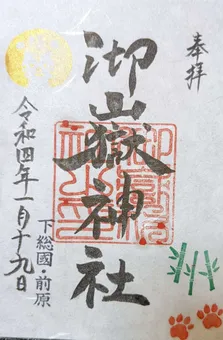 奉拝
御嶽山神社
下総國・前原
令和四年一月十九日